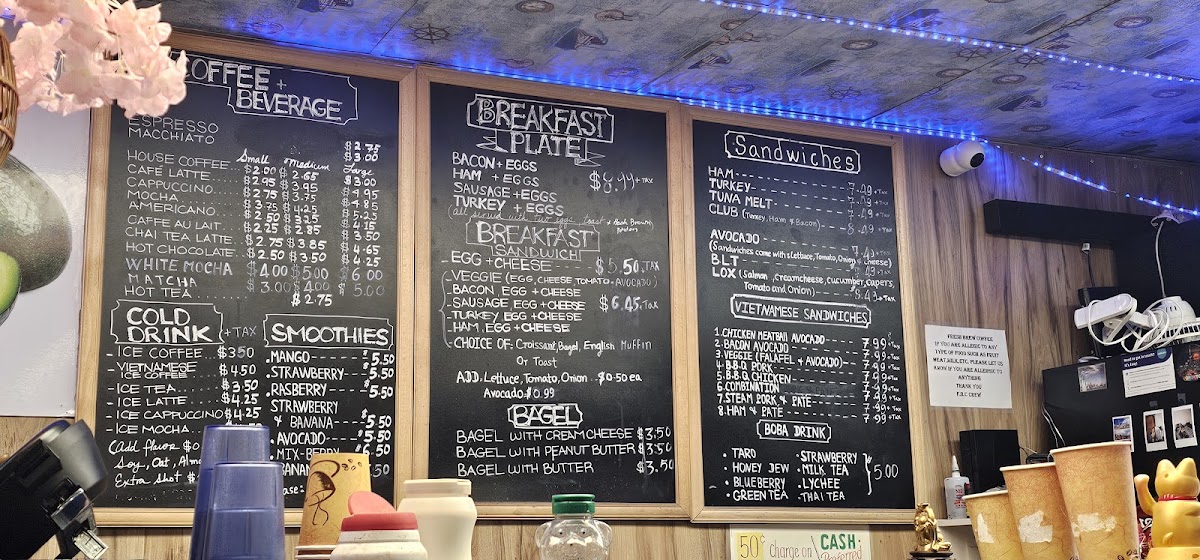 COFFEE +
BEVERAGE
ESPRESSO $2.75
MACCHIATO $3.00
Small Medium Large
HOUSE COFFEE $2.00 $2.65 $3.00
CAFÉ LATTE $2.95 $3.95 $4.95
CAPPUCCINO $2.75 $3.75 $4.85
MOCHA $3.75 $4.25 $5.25
AMERICANO $2.50 $3.25 $4.15
CAFFE AU LAIT $2.25 $2.85 $3.50
CHAI TEA LATTE $2.75 $3.85 $4.65
HOT CHOCOLATE $2.50 $3.50 $4.25
WHITE MOCHA $4.00 $5.00 6.00
MATCHA 3.00 4.00 5.00
HOT TEA $2.75
COLD
DRINK + TAX
- ICE COFFEE $3.50
- VIETNAMESE
ICE COFFEE $4.50
- ICE TEA $3.50
- ICE LATTE $4.25
- ICE CAPPUCCINO $4.25
- ICE MOCHA
(Add flavor $0
Soy, Oat, Alm
Extra Shot $
SMOOTHIES
.MANGO $5.50
.STRAWBERRY $5.50
.RASBERRY $5.50
STRAWBERRY
& BANANA $5.50
.AVOCADO $6.50
.MIX-BERRY
BANANA
BREAKFAST
PLATE
BACON + EGGS
HAM + EGGS
SAUSAGE + EGGS
TURKEY + EGGS
$8.99 + TAX
(all served with two eggs, toast & Hash Brown,
BREAKFAST
SANDWICH
- EGG + CHEESE $5.50 + TAX
- VEGGIE (EGG, CHEESE, TOMATO + AVOCADO)
- BACON, EGG + CHEESE
- SAUSAGE, EGG + CHEESE
- TURKEY, EGG + CHEESE
- HAM, EGG + CHEESE
$6.45 + TAX
- CHOICE OF: Croissant, Bagel, English Muffin
Or Toast
ADD. Lettuce, Tomato, Onion $0.50 ea
Avocado $0.99
BAGEL
BAGEL WITH CREAM CHEESE $3.50
BAGEL WITH PEANUT BUTTER $3.50
BAGEL WITH BUTTER $3.50
Sandwiches
HAM 7.49 + TAX
TURKEY 7.49 + TAX
TUNA MELT 7.49 + TAX
CLUB (Turkey, Ham & Bacon) 8.49 + TAX
AVOCADO 7.49 + TAX
(Sandwiches come with: Lettuce, Tomato, Onion & Cheese)
BLT
LOX (Salmon, Creamcheese, cucumber, Capers,
Tomato and Onion) 8.49 + TAX
VIETNAMESE SANDWICHES
1. CHICKEN MEATBALL AVOCADO 7.99 + TAX
2. BACON AVOCADO 7.99 + TAX
3. VEGGIE (FALAFEL + AVOCADO) 7.99 + TAX
4. B.B.Q. PORK 7.99 + TAX
5. B.B.Q. CHICKEN 7.99 + TAX
6. COMBINATION 7.99 + TAX
7. STEAM PORK & PATE 7.99 + TAX
8. HAM & PATE 7.99 + TAX
BOBA DRINK
• TARO • STRAWBERRY
• HONEY JEW • MILK TEA
• BLUEBERRY • LYCHEE
• GREEN TEA • THAI TEA
$5.00
FRESH BREW COFFEE
IF YOU ARE ALLERGIC TO ANY
TYPE OF FOOD SUCH AS FRUIT
MEAT, MILK, ETC. PLEASE LET US
KNOW IF YOU ARE ALLERGIC TO
ANYTHING
THANK YOU
F.B.C CREW!
50¢ Charge on
CASH
Preferred